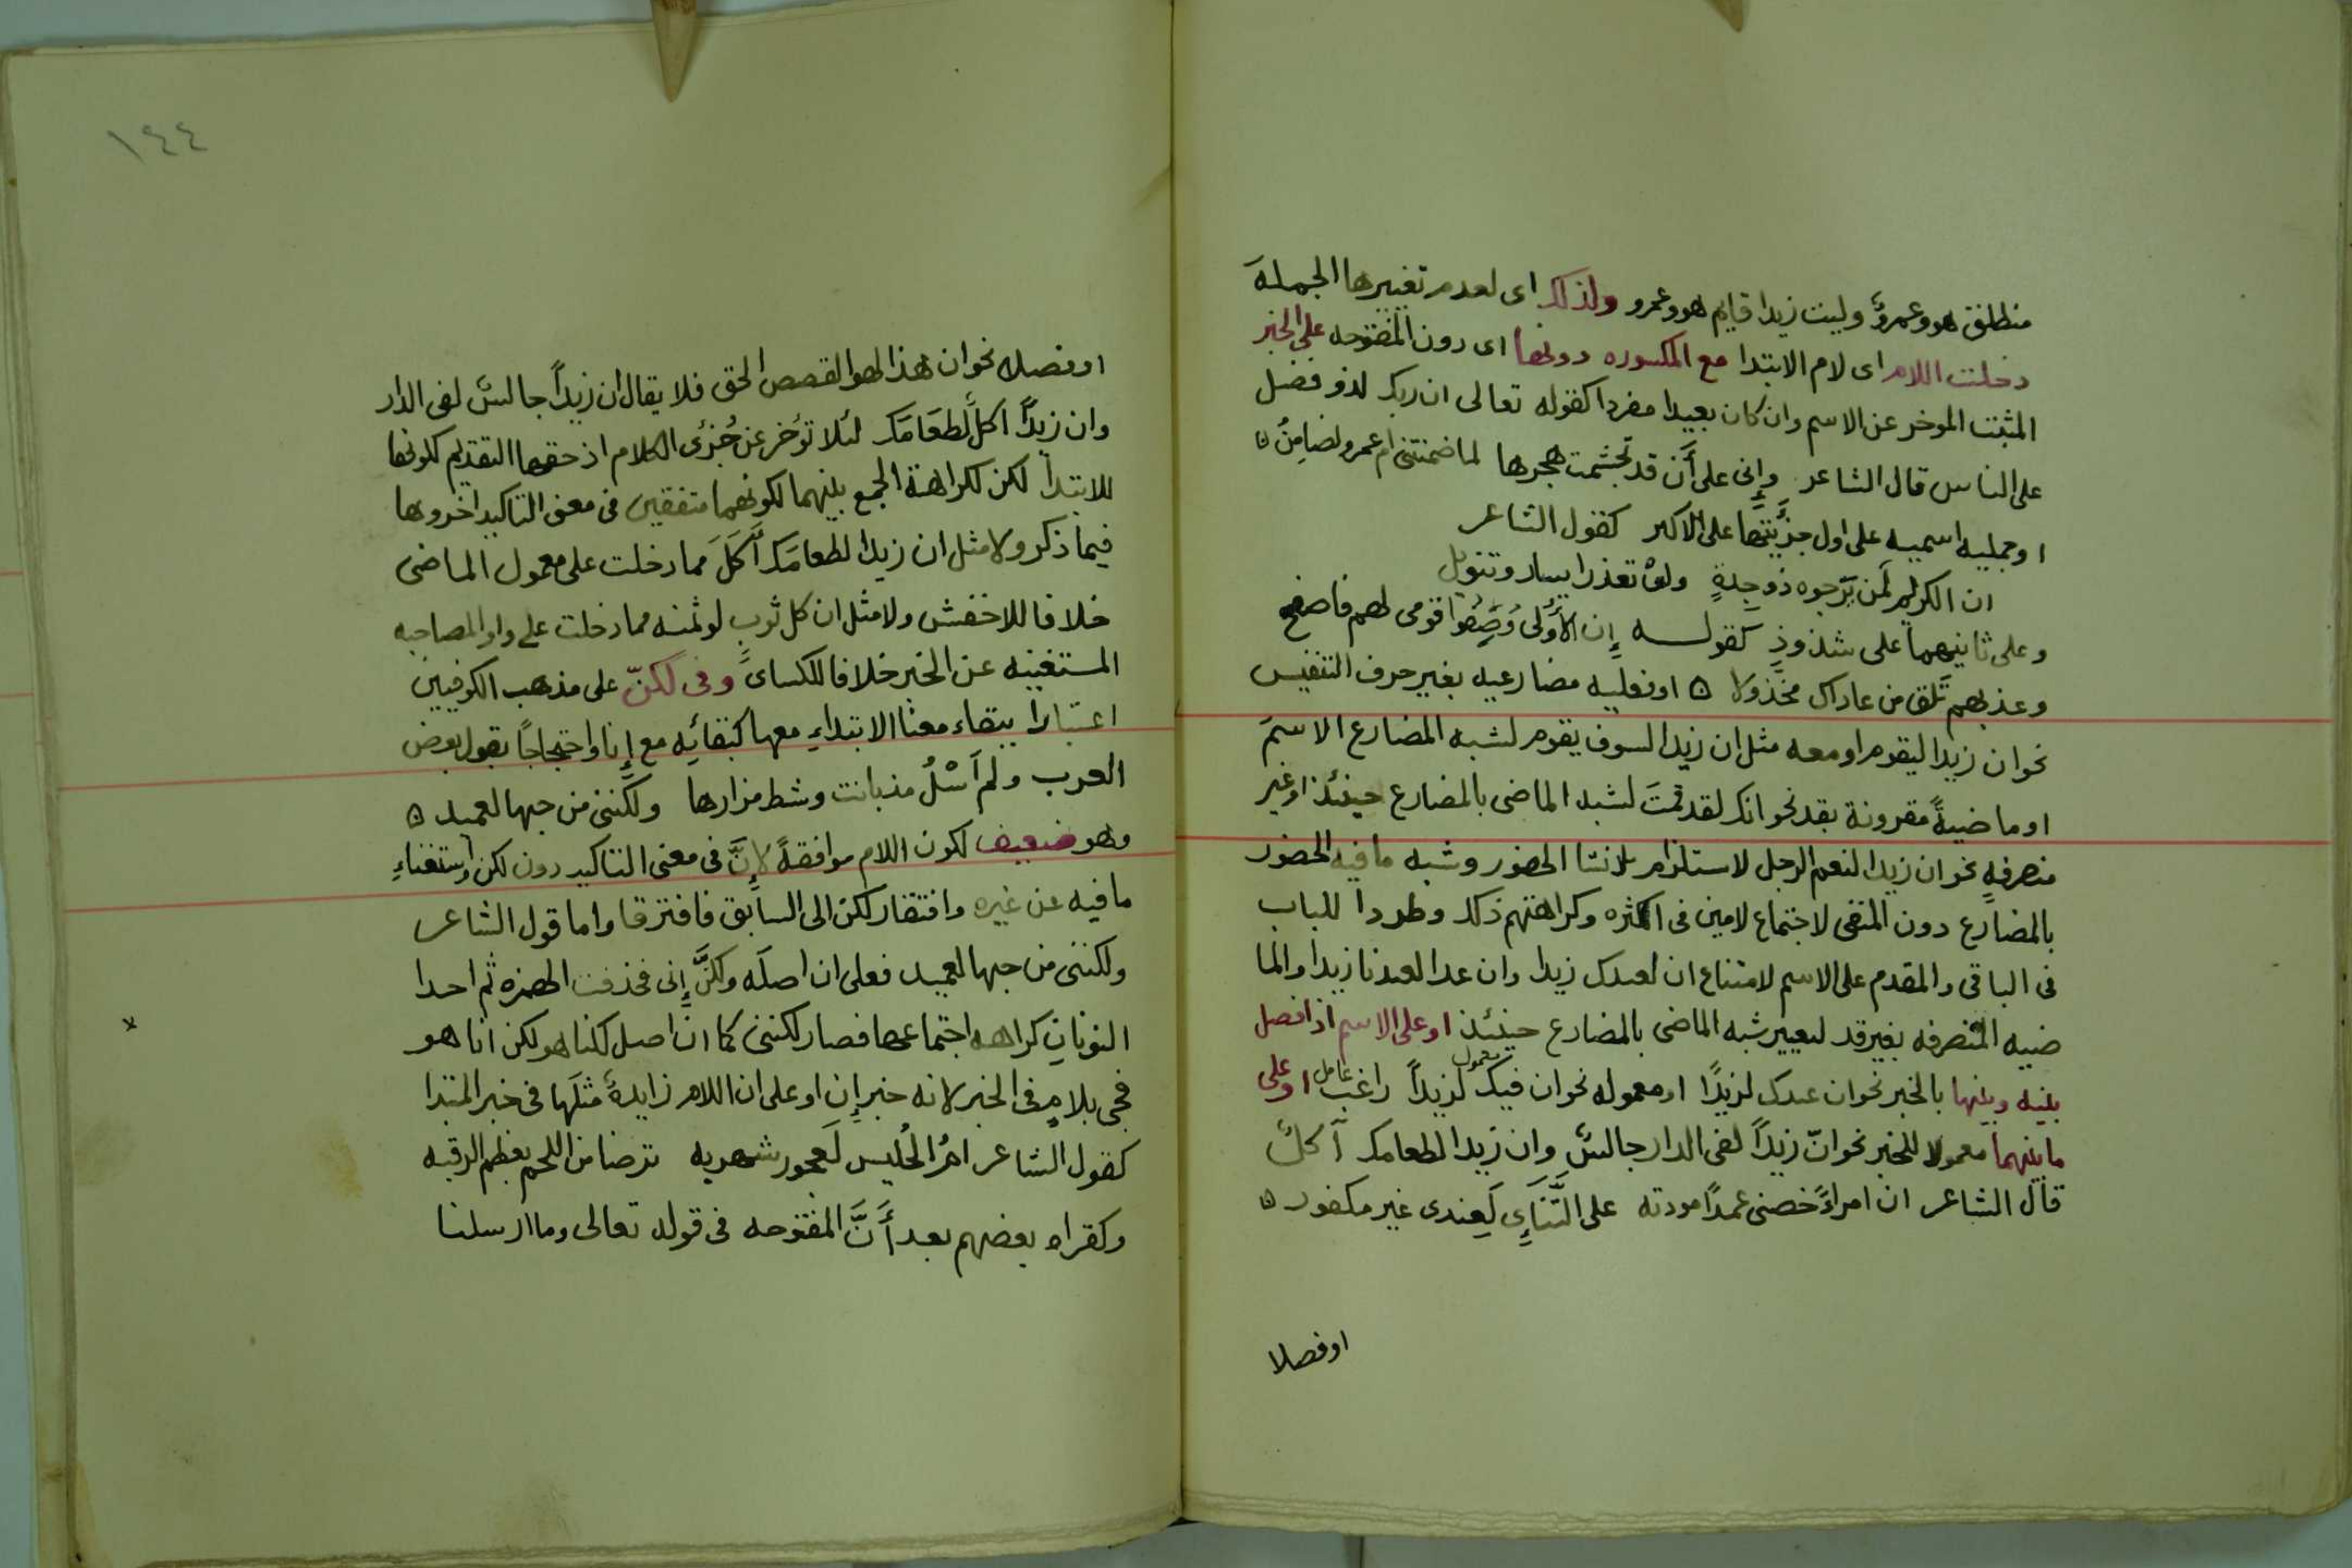 منطلق هو وعمروٌ وليت زيدا قايم هو وعمرو ولذلك اى لعدم تغييرها الجملة
دخلت اللام اى لام الابتدا مع المكسوره دونها اى دون المفتوحه على الخبر
المثبت الموخر عن الاسم وان كان بعيدا مفردا كقوله تعالى ان ربك لذو فضل
على الناس قال الشاعر وإنى على أَن قد تجشمت هجرها لما ضمنتنى ام عمرو لضامِنُ ه
او جمليه اسميه على اول جزَيتها على الاكثر كقول الشاعر
ان الكريم لَمن يَرجوه ذو جِدةٍ ولوْ تعذر ايسار وتنويل
وعلى ثانيهما على شذوذٍ كقولـــه إِن الأُولى وُصِفوا قومى لهم فاصفح
وعذ بهم تَلق من عاداك مخذولا ه او فعليه مضارعيه بغير حرف التنفيس
نحو ان زيدا ليقوم او معه مثل ان زيدا لسوف يقوم لشبه المضارع الاسمَ
او ماضيةً مقرونة بقد نحو انك لقد قمتَ لشبه الماضى بالمضارع حينئذ او غير
منصرفهٍ نحو ان زيدا لنعم الرجل لاستلزام الانشا الحضور وشبه ما فيه الحضور
بالمضارع دون المنفى لاجتماع لامين فى اكثره وكراهتهم ذلك وطردا للباب
فى الباقى والمقدم على الاسم لامتناع ان لعندك زيدا وان غدا لعندنا زيدا والما
ضيه المنصرفه بغير قد لتغيير شبه الماضى بالمضارع حينئذ او على الاسم اذا فصل
بينه وبينها بالخبر نحو ان عندك لزيدًا او معموله نحو ان فيك معمول لزيداً راغب عامل او على
ما بينهما معمولا للخبر نحو انّ زيداً لفى الدار جالسٌ وان زيدا لطعامك آكلٌ
قال الشاعر ان امراءً خصنى عمدًا مودته على التَّنَآءِى لَعِندى غير مكفور ه
او فصلا
١٤٤
او فصلا نحو ان هذا لهو القصص الحق فلا يقال ان زيداً جالسٌ لفى الدار
وان زيداً آكلٌ لطعَامَك لئلا تؤخر عن جُزئى الكلام اذ حقها التقديم لكونها
للابتدا لكن لكراهة الجمع بينهما لكونهما متفقين فى معنى التاكيد اخروها
فيما ذكر ولا مثل ان زيدا لطعامَك أَكَلَ مما دخلت على معمول الماضى
خلافا للاخفش ولا مثل ان كل ثوبٍ لو ثمنه مما دخلت على واو المصاحبه
المستغنيه عن الخبر خلافا للكساى وفى لكنّ على مذهب الكوفيين
اعتبارا ببقاء معنا الابتداءِ معها كبقائِه مع إِنا واحتجاجاً بقول بعض
العرب ولم أسْلُ مذ بانت وشط مزارها ولكننى من حبها لعميد ه
وهو ضعيف لكون اللام موافقةً لإِنَّ فى معنى التاكيد دون لكن واستغناءِ
ما فيه عن غيره وافتقار لكن الى السابق فافترقا واما قول الشاعر
ولكننى من حبها لعميد فعلى ان اصلَه ولكنَّ إِنى فحذفت الهمزه ثم احدا
النونات كراهه اجتماعها فصار لكننى كما ان اصل لكنا هو لكن انا هو
فجى بلامٍ فى الخبر لانه خبر إن او على ان اللام زايدةٌ مثلَها فى خبر المبتدا
كقول الشاعر امُ الحُليس لَعجوز شهربه ترضا من اللحم بعظم الرقبه
وكقراه بعضهم بعد أَنَّ المفتوحه فى قوله تعالى وما ارسلنا